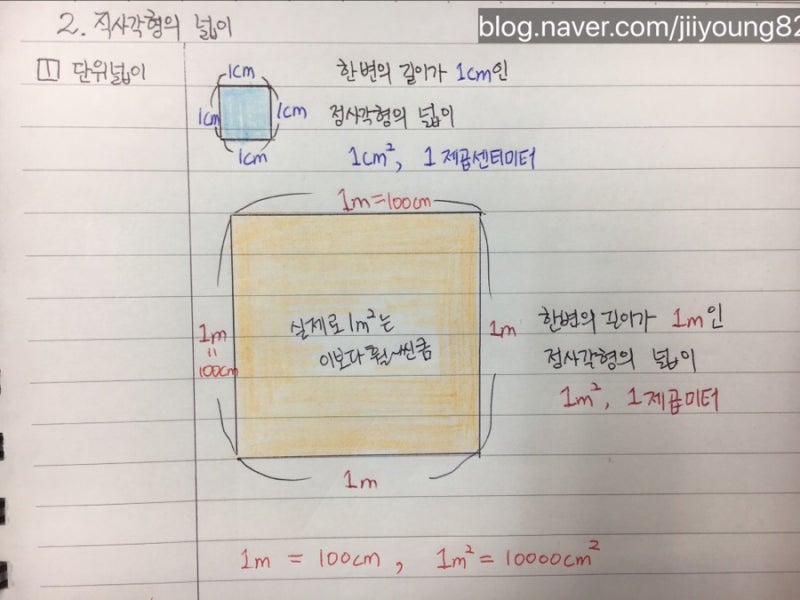 blog.naver.com/jiiyoung82
2. 직사각형의 넓이
1 단위넓이
1cm
1cm
1cm
1cm
한변의 길이가 1cm인
정사각형의 넓이
1cm², 1 제곱센티미터
1m=100cm
1m
=
100cm
실제로 1m²는
이보다 훨~씬 큼
1m
1m
한변의 길이가 1m인
정사각형의 넓이
1m², 1제곱미터
1m = 100cm, 1m² = 10000cm²